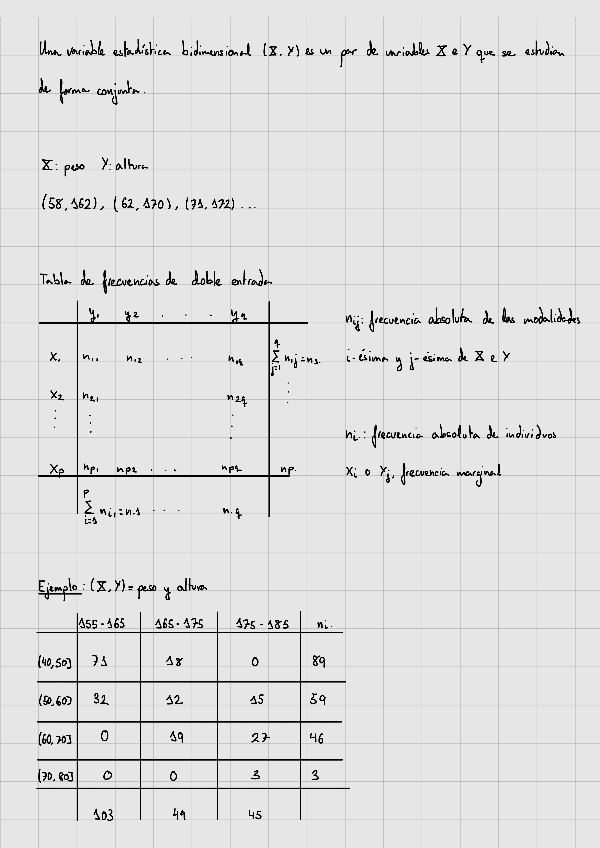 Una variable estadística bidimensional (X, Y) es un par de variables X e Y que se estudian
de forma conjunta.
X: peso Y: altura
(58, 162), (62, 170), (71, 172) ...
Tabla de frecuencias de doble entrada
y1 y2 . . . yq
x1 n11 n12 . . . n1q ∑_{j=1}^{q} n1j = n1.
x2 n21 n2q
xp np1 np2 . . . npq np.
∑_{i=1}^{p} ni1 = n.1 . . . n.q
nij: frecuencia absoluta de las modalidades
i-ésima y j-ésima de X e Y
ni.: frecuencia absoluta de individuos
xi o yj, frecuencia marginal
Ejemplo: (X, Y) = peso y altura
155-165 165-175 175-185 ni.
(40,50] 71 18 0 89
(50,60] 32 12 15 59
(60,70] 0 19 27 46
(70,80] 0 0 3 3
103 49 45